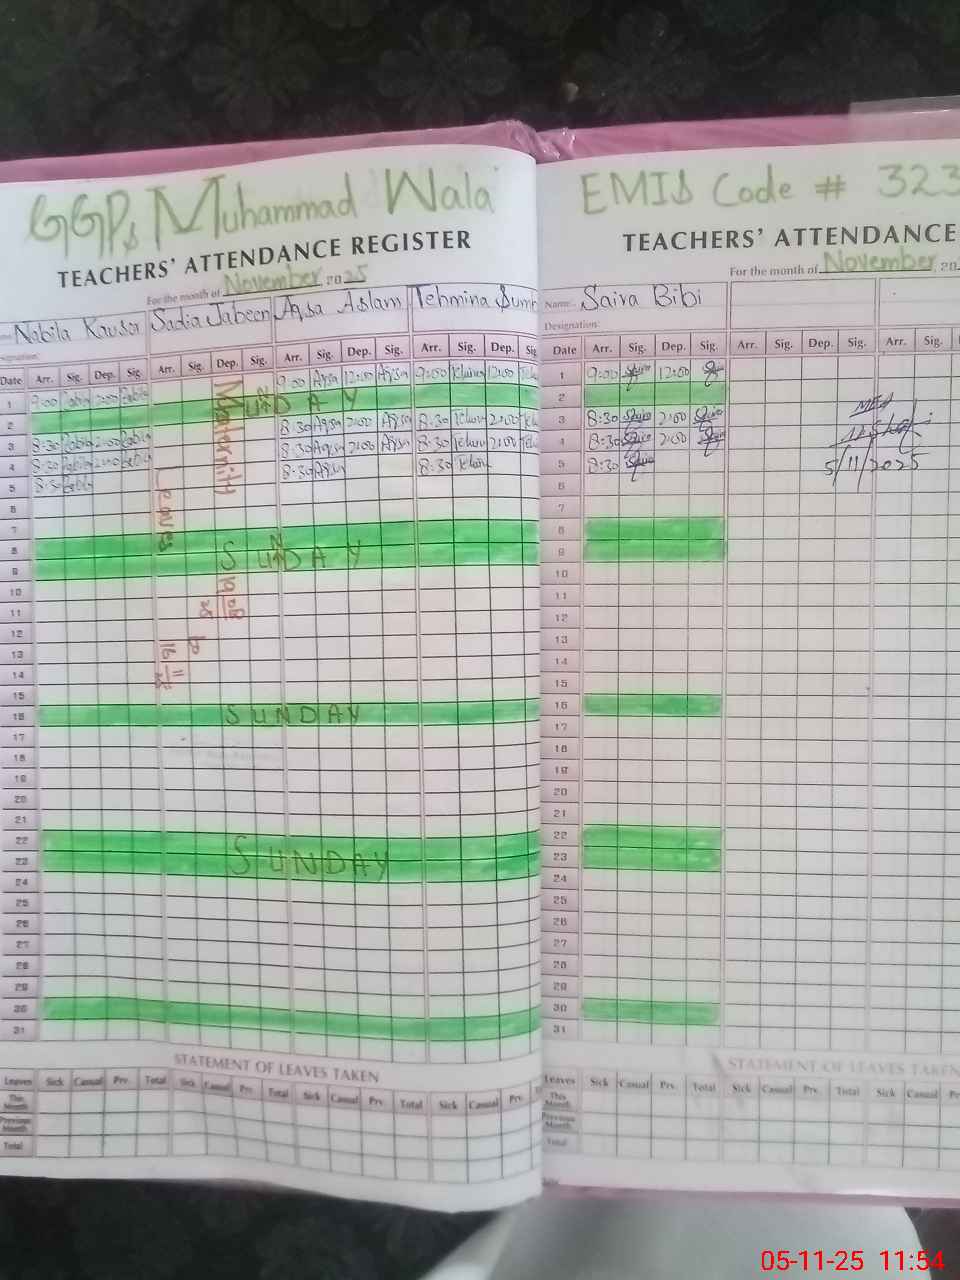 GGPS Muhammad Wala
TEACHERS' ATTENDANCE REGISTER
For the month of November, 2025
Nabila Kausar Sadia Jabeen Aqsa Aslam Tehmina
Date Arr. Sig. Dep. Sig. Arr. Sig. Dep. Sig. Arr. Sig. Dep. Sig. Arr. Sig. Dep. Sig
1 9:00 2:00 9:00 Aqsa 12:00 Aqsa 9:00 12:00
2 SUNDAY
3 8:30 2:00 8:30 Aqsa 2:00 Aqsa 8:30 2:00
4 8:30 2:00 8:30 Aqsa 2:00 Aqsa 8:30 2:00
5 8:30 8:30 Aqsa 8:30
Maternity
Leaves
6
7
8
9 SUNDAY
10
11
12
13
14
15
16 SUNDAY
17
18
19
20
21
22
23 SUNDAY
24
25
26
27
28
29
30
31
STATEMENT OF LEAVES TAKEN
Leaves Sick Casual Prv. Total Sick Casual Prv. Total Sick Casual Prv. Total Sick Casual Prv.
This Month
Previous Month
Total
EMIS Code # 323
TEACHERS' ATTENDANCE
For the month of November, 20
Name: Saira Bibi
Designation:
Date Arr. Sig. Dep. Sig. Arr. Sig. Dep. Sig. Arr. Sig.
1 9:00 12:00
2
3 8:30 2:00
4 8:30 2:00
5 8:30
MEA
5/11/2025
6
7
8
9
10
11
12
13
14
15
16
17
18
19
20
21
22
23
24
25
26
27
28
29
30
31
STATEMENT OF LEAVES TAKEN
Leaves Sick Casual Prv. Total Sick Casual Prv. Total Sick Casual
This Month
Previous Month
Total
05-11-25 11:54